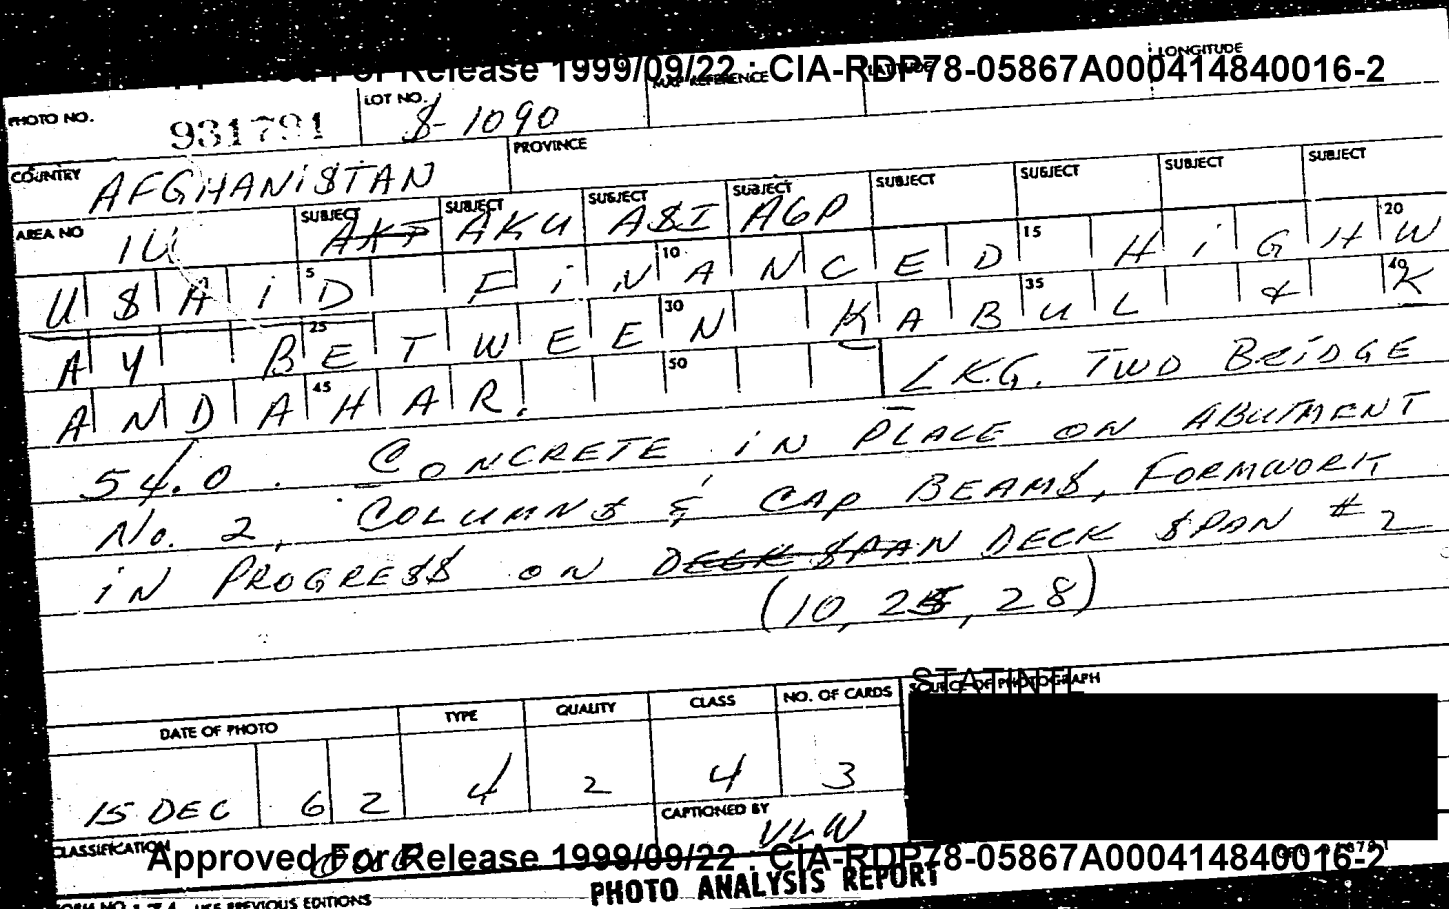 Approved For Release 1999/09/22 : CIA-RDP78-05867A000414840016-2
PHOTO NO. 931791 LOT NO. S-1090 MAP REFERENCE LATITUDE LONGITUDE
COUNTRY AFGHANISTAN PROVINCE
AREA NO 1U SUBJECT AKT SUBJECT AKU SUBJECT ASI SUBJECT AGP SUBJECT SUBJECT SUBJECT SUBJECT
USAID 5 FINANCED 10 15 HIGHW 20
AY BETWEEN 25 30 KABUL 35 & K 40
ANDAHAR. 45 50 LKG. TWO BRIDGE
54.0. CONCRETE IN PLACE ON ABUTMENT
No. 2, COLUMNS & CAP BEAMS, FORMWORK
IN PROGRESS ON DECK SPAN DECK SPAN # 2
(10, 25, 28)
STATINTL
DATE OF PHOTO TYPE QUALITY CLASS NO. OF CARDS SOURCE OF PHOTOGRAPH
15 DEC 62 4 2 4 3
CAPTIONED BY VLW
CLASSIFICATION
Approved For Release 1999/09/22 : CIA-RDP78-05867A000414840016-2
PHOTO ANALYSIS REPORT
FORM NO. USE PREVIOUS EDITIONS